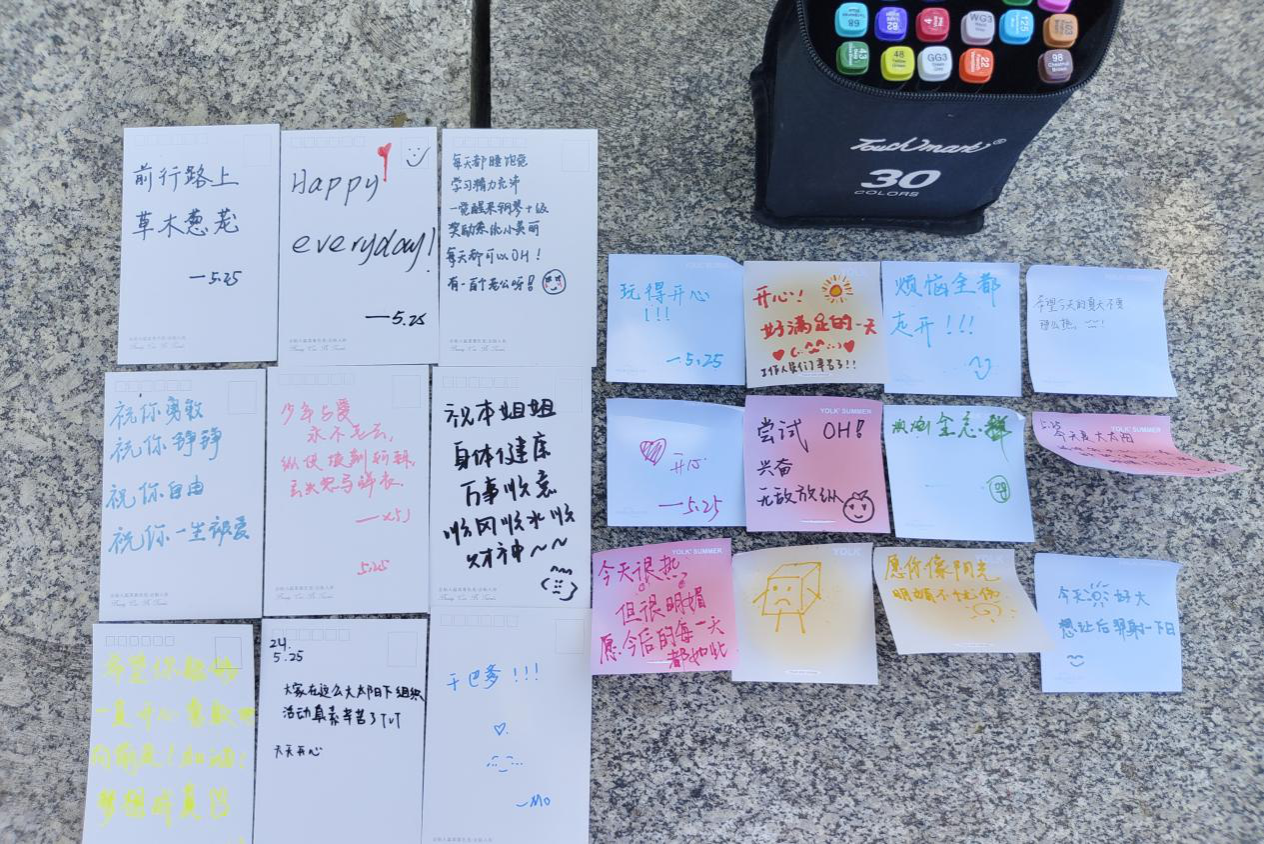 68
82
4
WG3
125
43
48
GG3
22
98
Touch mark®
30
COLORS
前行路上
草木葱茏
—5.25
Happy
everyday!
—5.25
每天都睡饱觉
学习精力充沛
一觉醒来钢琴十级
奖励
小美丽
每天都可以OH!
祝你勇敢
祝你铮铮
祝你自由
祝你一生被爱
少年与爱
永不老去,
纵使披荆斩棘,
丢失怒马鲜衣.
5.25
祝本姐姐
身体健康
万事收意
收风收水收
财神~~
希望你能够
一直开心勇敢地
向前走!加油!
梦想成真
24.
5.25
大家在这么大太阳下组织
活动真素辛苦了TvT
天天开心
干巴爹!!!
~Mo
玩得开心
!!!
—5.25
开心!
好满足的一天
工作人员们辛苦了!!
烦恼全都
走开!!!
希望今天的夏天不要
那么热。
开心
—5.25
YOLK* SUMMER
尝试 OH!
兴奋
无敌放纵
YOLK* SUMMER
5.25
今天是大太阳
YOLK* SUMMER
今天很热
但很明媚
愿今后的每一天
都如此
YOLK*
愿你像阳光
明媚不忧伤
今天 好大
想让后羿射一下日